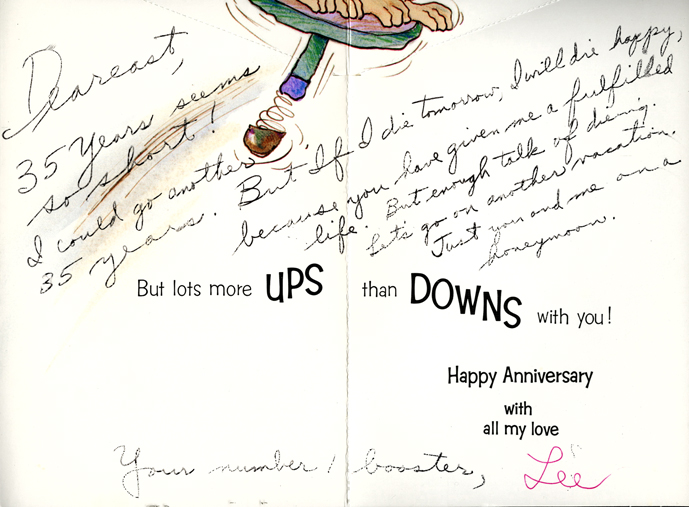 Deareast,
35 years seems
so short!
I could go another
35 years. But If I die tomorrow, I will die happy,
because you have given me a fulfilled
life. But enough talk of dieing.
Let's go on another vacation.
Just you and me on a
honeymoon.
But lots more UPS than DOWNS with you!
Happy Anniversary
with
all my love
Your number 1 booster,
Lee